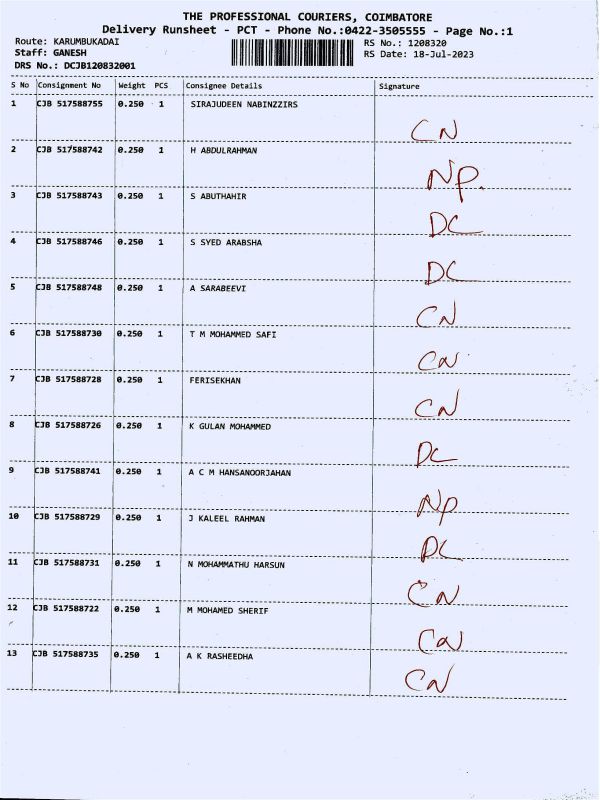 THE PROFESSIONAL COURIERS, COIMBATORE
Delivery Runsheet - PCT - Phone No.:0422-3505555 - Page No.:1
Route: KARUMBUKADAI RS No.: 1208320
Staff: GANESH RS Date: 18-Jul-2023
DRS No.: DCJB120832001
S No Consignment No Weight PCS Consignee Details Signature
1 CJB 517588755 0.250 1 SIRAJUDEEN NABINZZIRS
CN
2 CJB 517588742 0.250 1 H ABDULRAHMAN
NP.
3 CJB 517588743 0.250 1 S ABUTHAHIR
DC
4 CJB 517588746 0.250 1 S SYED ARABSHA
DC
5 CJB 517588748 0.250 1 A SARABEEVI
CN
6 CJB 517588730 0.250 1 T M MOHAMMED SAFI
CN
7 CJB 517588728 0.250 1 FERISEKHAN
CN
8 CJB 517588726 0.250 1 K GULAN MOHAMMED
DC
9 CJB 517588741 0.250 1 A C M HANSANOORJAHAN
NP
10 CJB 517588729 0.250 1 J KALEEL RAHMAN
DC
11 CJB 517588731 0.250 1 N MOHAMMATHU HARSUN
CN
12 CJB 517588722 0.250 1 M MOHAMED SHERIF
CN
13 CJB 517588735 0.250 1 A K RASHEEDHA
CN